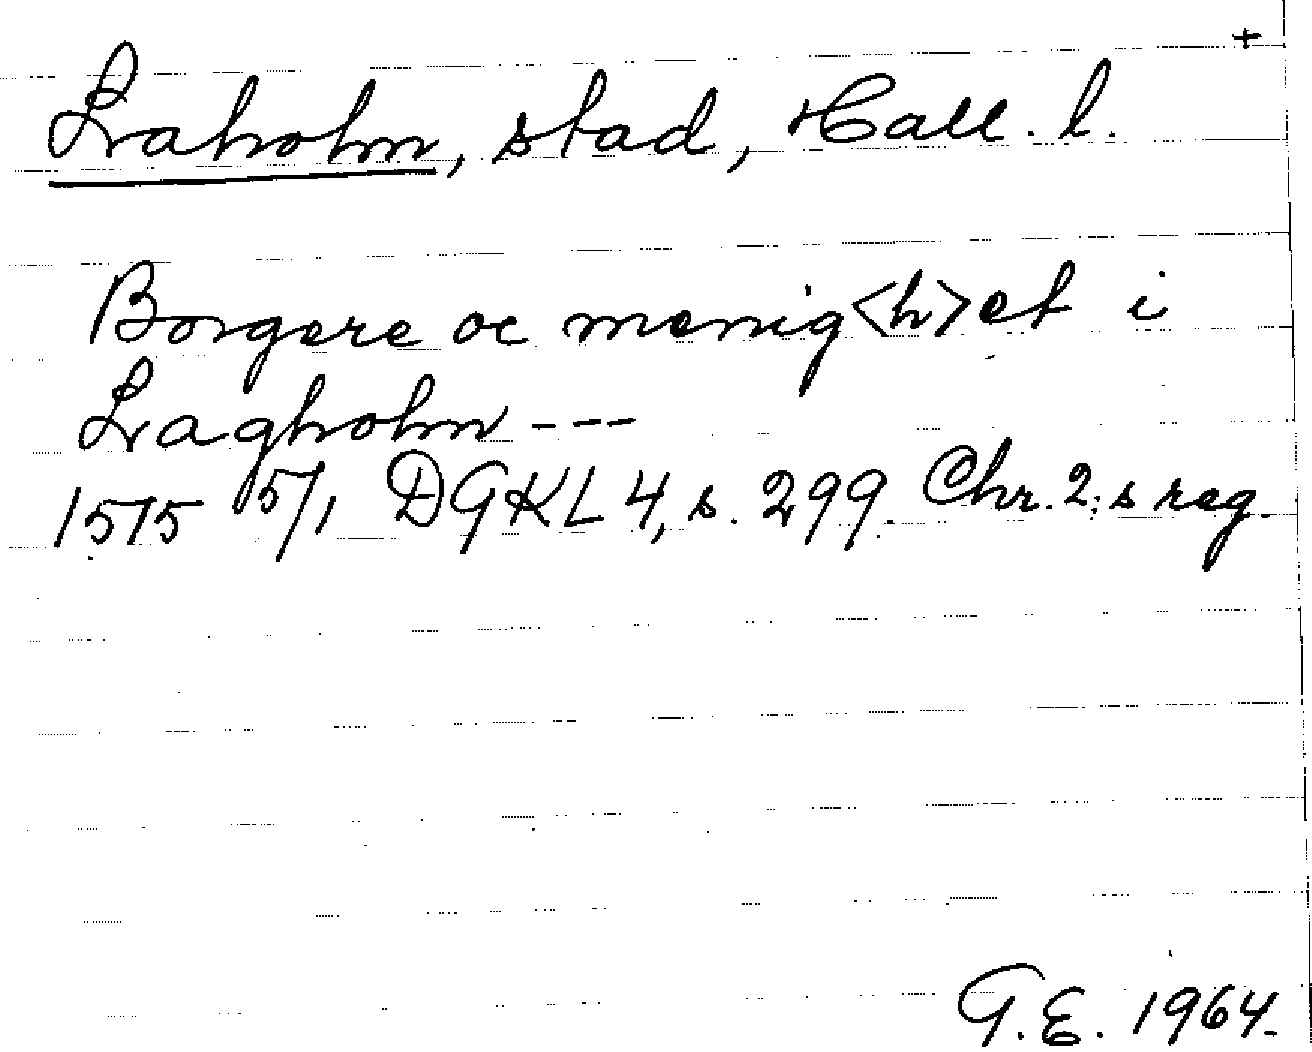 +
Laholm, stad, Hall. l.
Borgere oc menig<h>et i
Lagholm ---
1515 15/1 DGKL 4, s. 299. Chr. 2:s reg.
G.E. 1964.